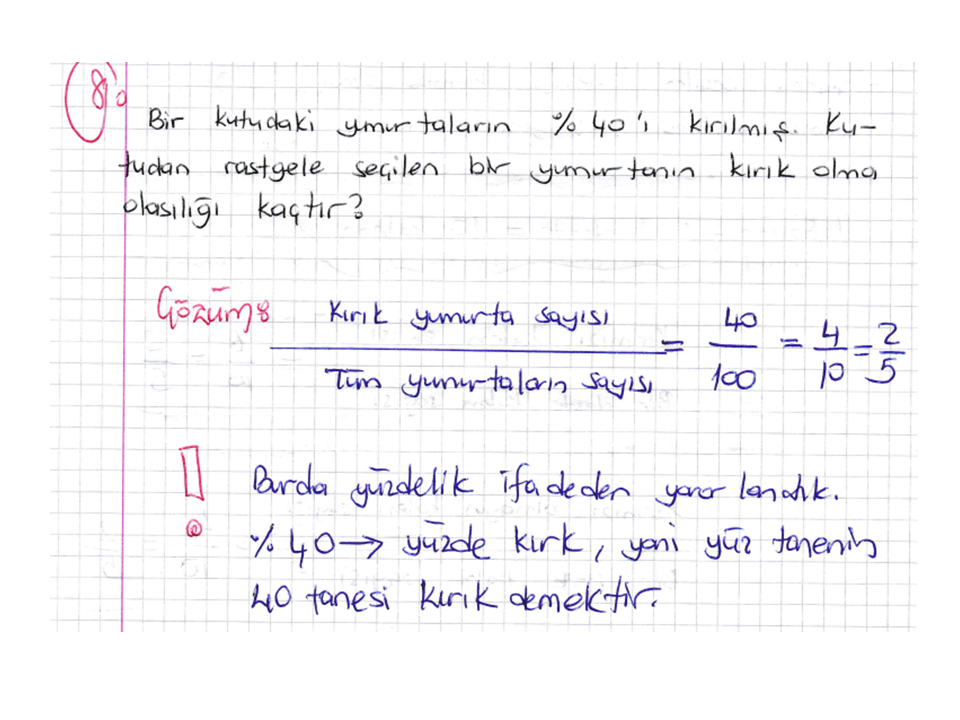 8)
Bir kutudaki ymurtaların %40'ı kırılmış. Ku-
tudan rastgele seçilen bir yumurtanın kırık olma
olasılığı kaçtır?
Çözüm:
Kırık yumurta sayısı / Tüm yumurtaların sayısı = 40/100 = 4/10 = 2/5
! Burda yüzdelik ifadeden yararlandık.
%40 → yüzde kırk, yani yüz tanenin
40 tanesi kırık demektir.